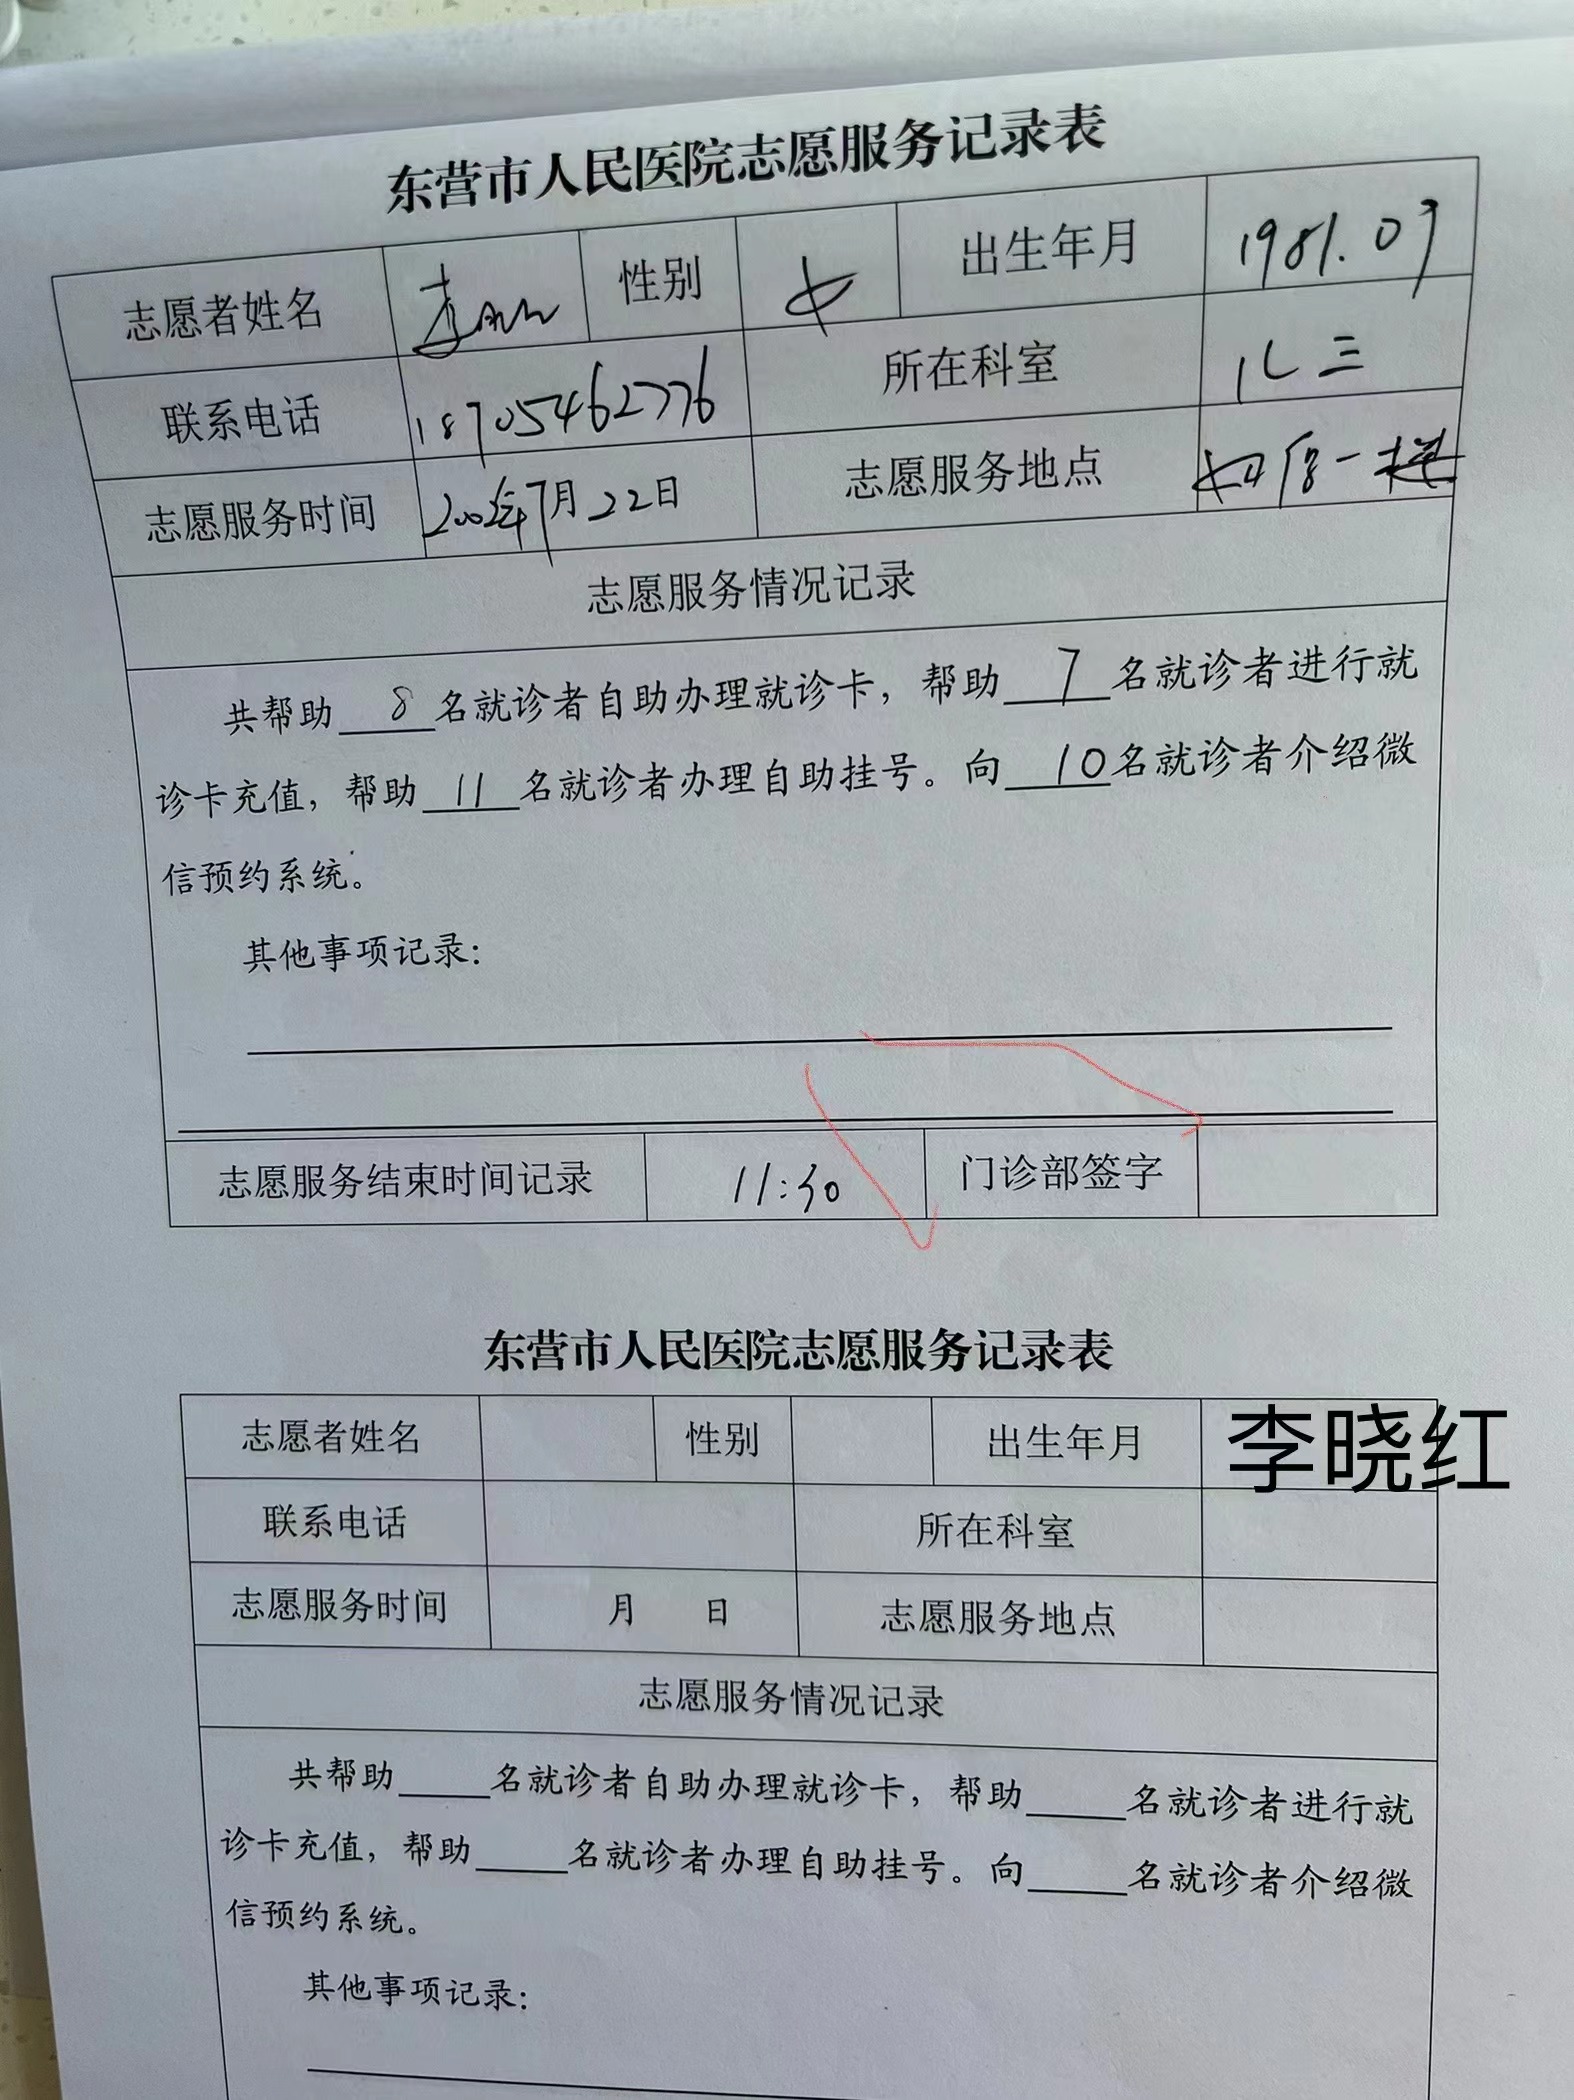 东营市人民医院志愿服务记录表
志愿者姓名 李 性别 女 出生年月 1981.09
联系电话 18705462776 所在科室 儿三
志愿服务时间 年7月22日 志愿服务地点 一楼
志愿服务情况记录
共帮助 8 名就诊者自助办理就诊卡，帮助 7 名就诊者进行就
诊卡充值，帮助 11 名就诊者办理自助挂号。向 10 名就诊者介绍微
信预约系统。
其他事项记录：
志愿服务结束时间记录 11:30 门诊部签字
东营市人民医院志愿服务记录表
志愿者姓名 性别 出生年月 李晓红
联系电话 所在科室
志愿服务时间 月 日 志愿服务地点
志愿服务情况记录
共帮助____名就诊者自助办理就诊卡，帮助____名就诊者进行就
诊卡充值，帮助____名就诊者办理自助挂号。向____名就诊者介绍微
信预约系统。
其他事项记录：